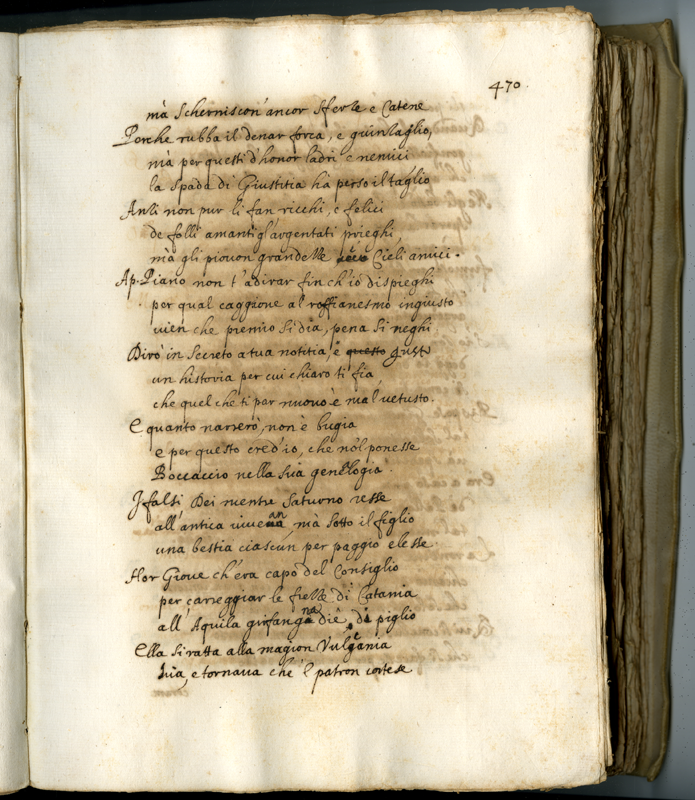 470
mà scherniscon' ancor sferze e Catene
Perche rubba il denar forca, e quintaglio,
mà per questi d'honor ladri e nemici
la spada di Giustitia hà perso il taglio
Anzi non pur li fan ricchi, e felici
de folli amanti gl'argentati prieghi
mà gli piovon grandezze Cieli amici.
Ap. Piano non t'adirar finch'io dispieghi
per qual caggione al roffianesmo ingiusto
vien che premio si dia, pena si neghi
Dirò in secreto a tua notitia, e questo gusto
un historia per cui chiaro ti fia
che quel che ti par nuovo è mal vetusto.
E quanto narrerò, non è bugia
e per questo cred'io, che nol ponesse
Boccaccio nella sua genelogia
I falsi Dei mentre Saturno resse
all'antica mà sotto il figlio
una bestia ciascun per paggio elesse
Hor Giove ch'era capo del Consiglio
per carreggiar le frezze di Catania
all'Aquila grifangna diè di piglio
Ella si ratta alla magion Vulcania
iva, e tornava che 'l patron cortese